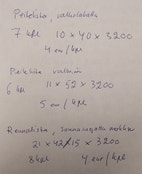 Peitelista, valkolakattu
7 kpl 10 x 40 x 3200
4 eur/kpl
Peitelista valkoinen
6 kpl 11 x 52 x 3200
5 eur/kpl
Reunalista,
21 x 42/15 x 3200
8 kpl 4 eur/kpl